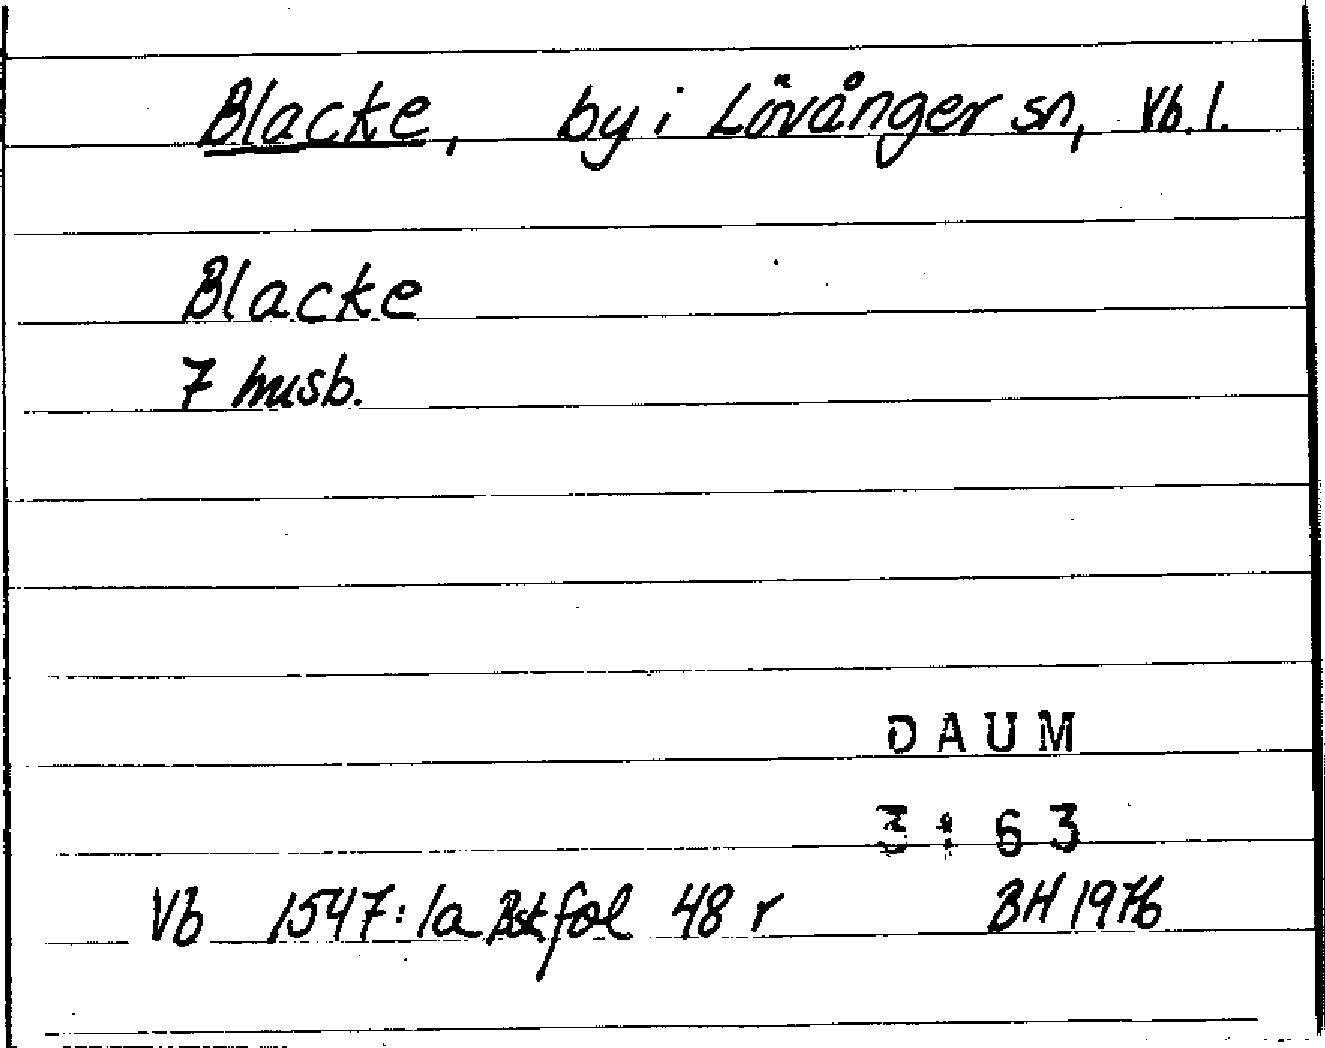 Blacke, by i Lövånger sn, Vb. l.
Blacke
7 husb.
DAUM
3:63
Vb 1547:1a Bsk fol 48 r BH 1976